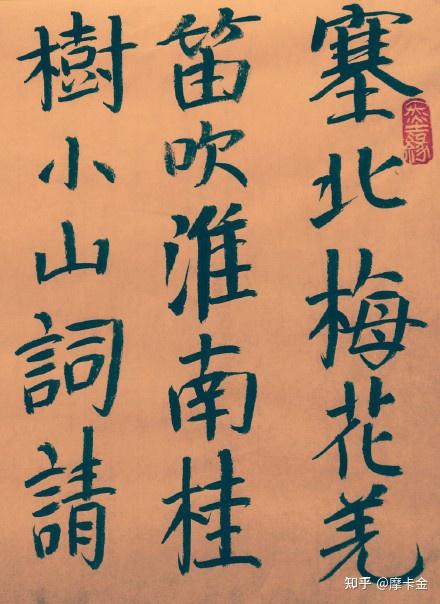 塞北梅花羌
笛吹淮南桂
樹小山詞請
知乎 @摩卡金